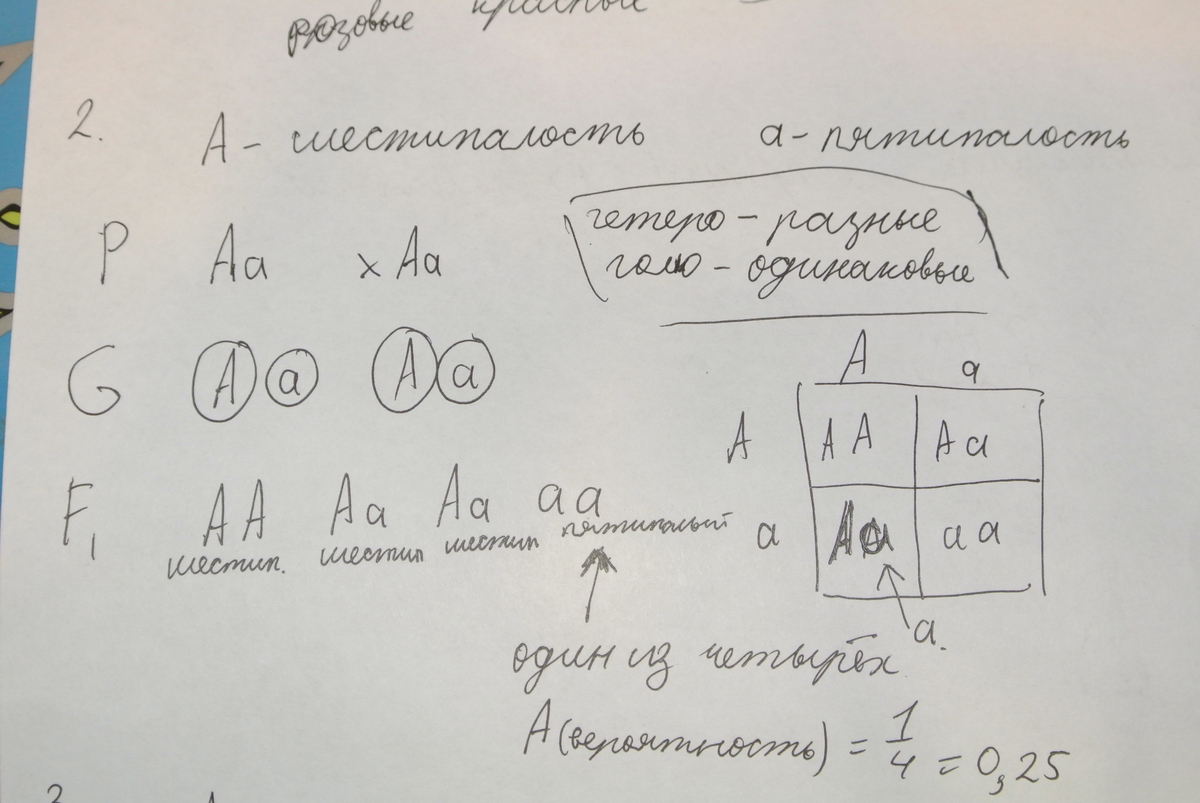 розовые красные
2. А - шестипалость а - пятипалость
P Аа х Аа
гетеро - разные
гомо - одинаковые
G А а А а
А а
А АА Аа
а Аа аа
F1 АА Аа Аа аа
шестип. шестип шестип пятипалый
а.
один из четырёх
А (вероятность) = 1/4 = 0,25
3.